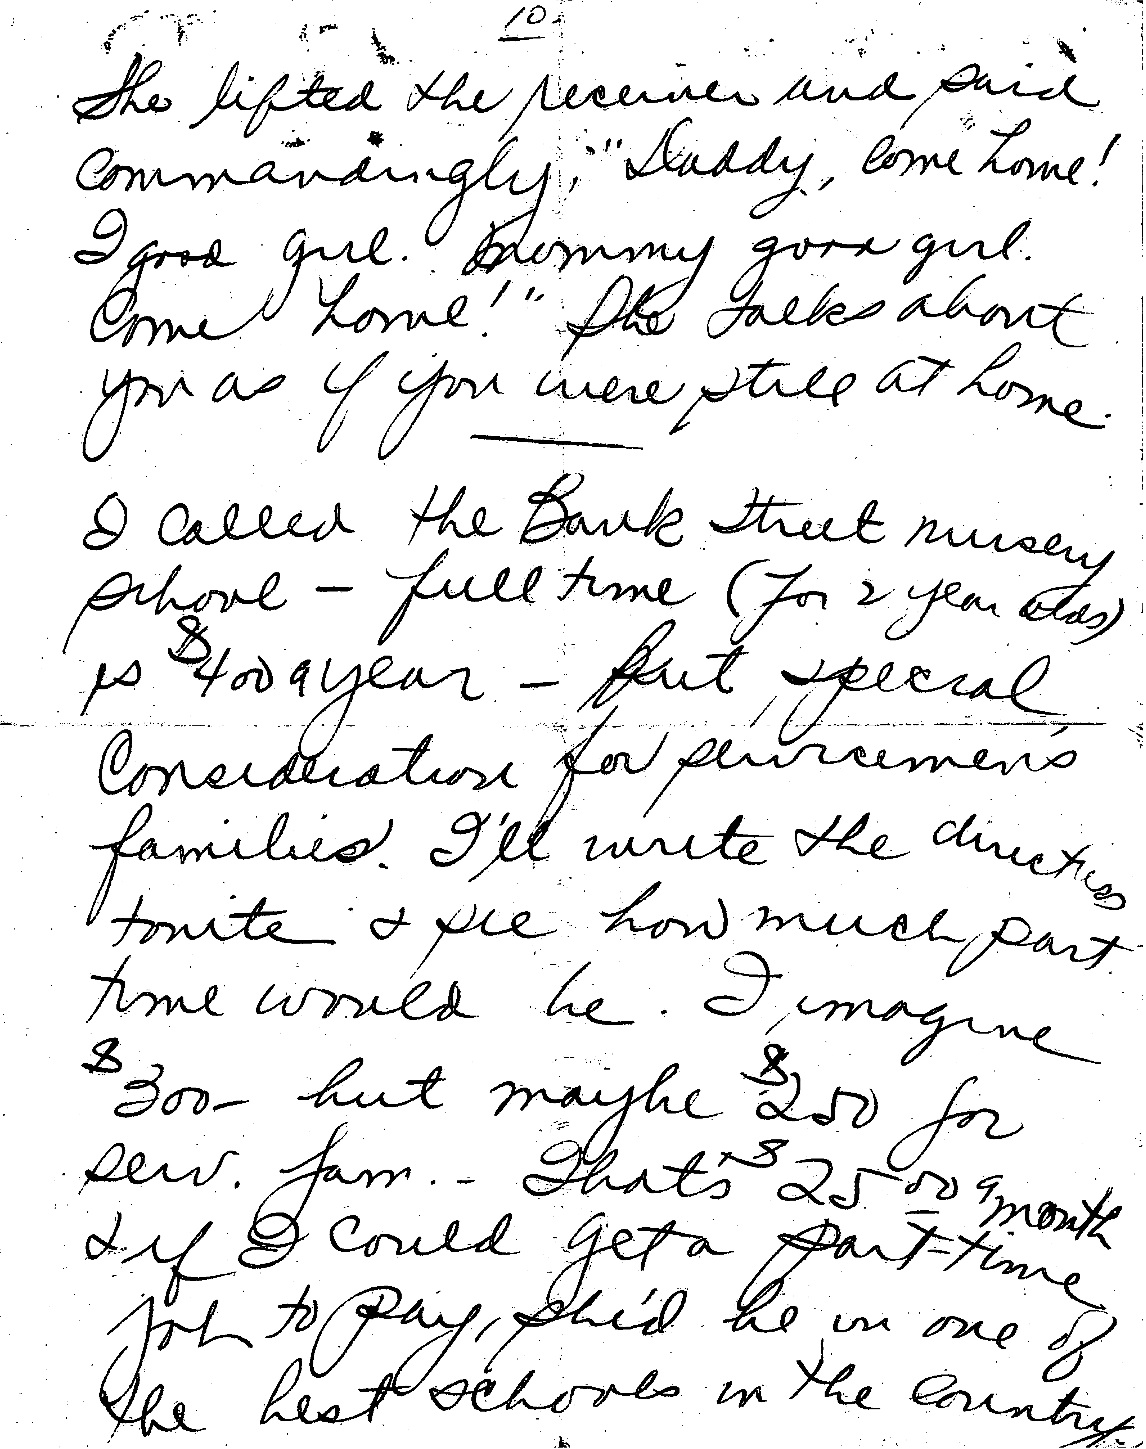 10
She lifted the receiver and said
commandingly, "Daddy, come home!
I good girl. Mommy good girl.
Come home!" She talks about
you as if you were still at home.
I called the Bank Street nursery
school – full time (for 2 year olds)
is $400 a year – But, special
Consideration for servicemen's
families. I'll write the directress
tonite & see how much part
time would be. I imagine
$300– but maybe $250 for
serv. fam. – That's $25 00 a month
& if I could get a part-time
job to pay, she'd be in one of
the best schools in the country.